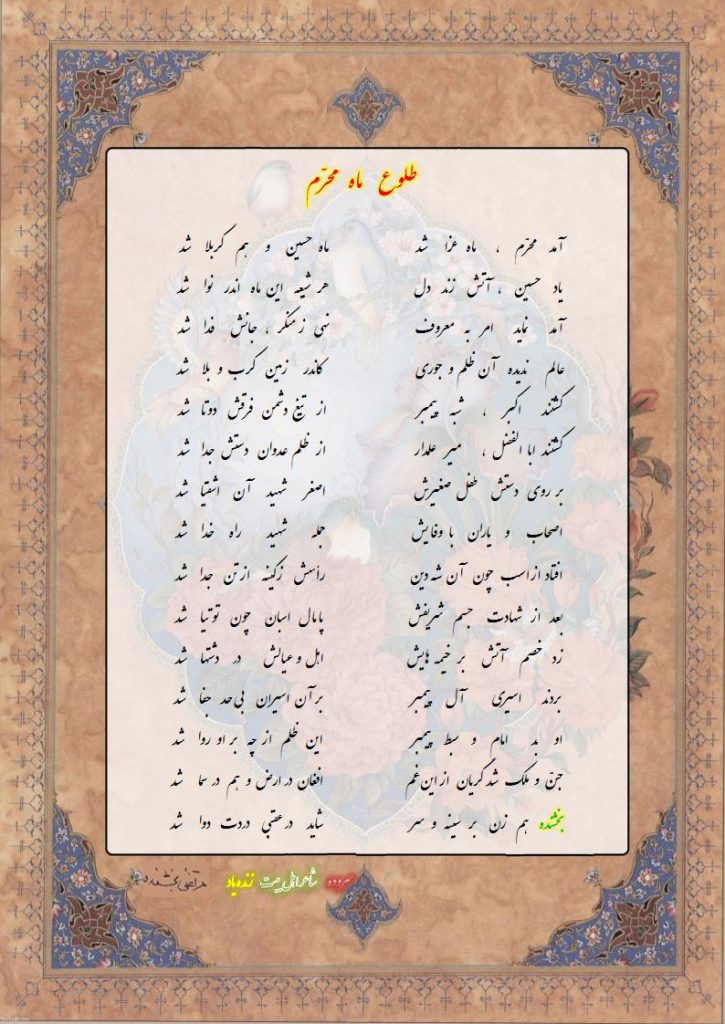 طلوع ماه محرّم
آمد محرّم ، ماه عزا شد ماه حسین و هم کربلا شد
یاد حسین ، آتش زند دل هر شیعه این ماه اندر نوا شد
آمد نماید امر به معروف نهی ز منکر ، جانش فدا شد
عالم ندیده آن ظلم و جوری کاندر زمین کرب و بلا شد
کشتند اکبر ، شبه پیمبر از تیغ دشمن فرقش دوتا شد
کشتند ابا الفضل ، میر علمدار از ظلم عدوان دستش جدا شد
بر روی دستش طفل صغیرش اصغر شهید آن اشقیا شد
اصحاب و یاران با وفایش جمله شهید راه خدا شد
افتاد از اسب چون آن شه دین رأسش ز کینه از تن جدا شد
بعد از شهادت جسم شریفش پامال اسبان چون توتیا شد
زد خصم آتش بر خیمه هایش اهل و عیالش در دشتها شد
بردند اسیری آل پیمبر بر آن اسیران بی حد جفا شد
او بد امام و سبط پیمبر این ظلم از چه بر او روا شد
جنّ و ملک شد گریان از این غم افغان در ارض و هم در سما شد
بخشنده هم زن بر سینه و سر شاید در عقبی دردت دوا شد
سروده شاعر اهل بیت زنده یاد مرتضی بخشنده